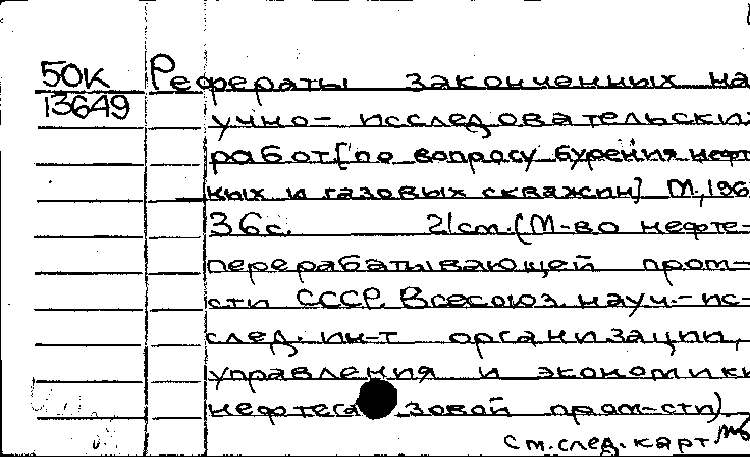 50К Рефераты законченных на
13649 учно-исследовательски
работ [по вопросу бурения нефт
ных и газовых скважин] М., 196
36с. 21см. (М-во нефте-
перерабатывающей пром-
сти СССР. Всесоюз. науч.-ис-
след. ин-т организации,
управления и экономики
нефтегазовой пром-сти).
См. след. карт